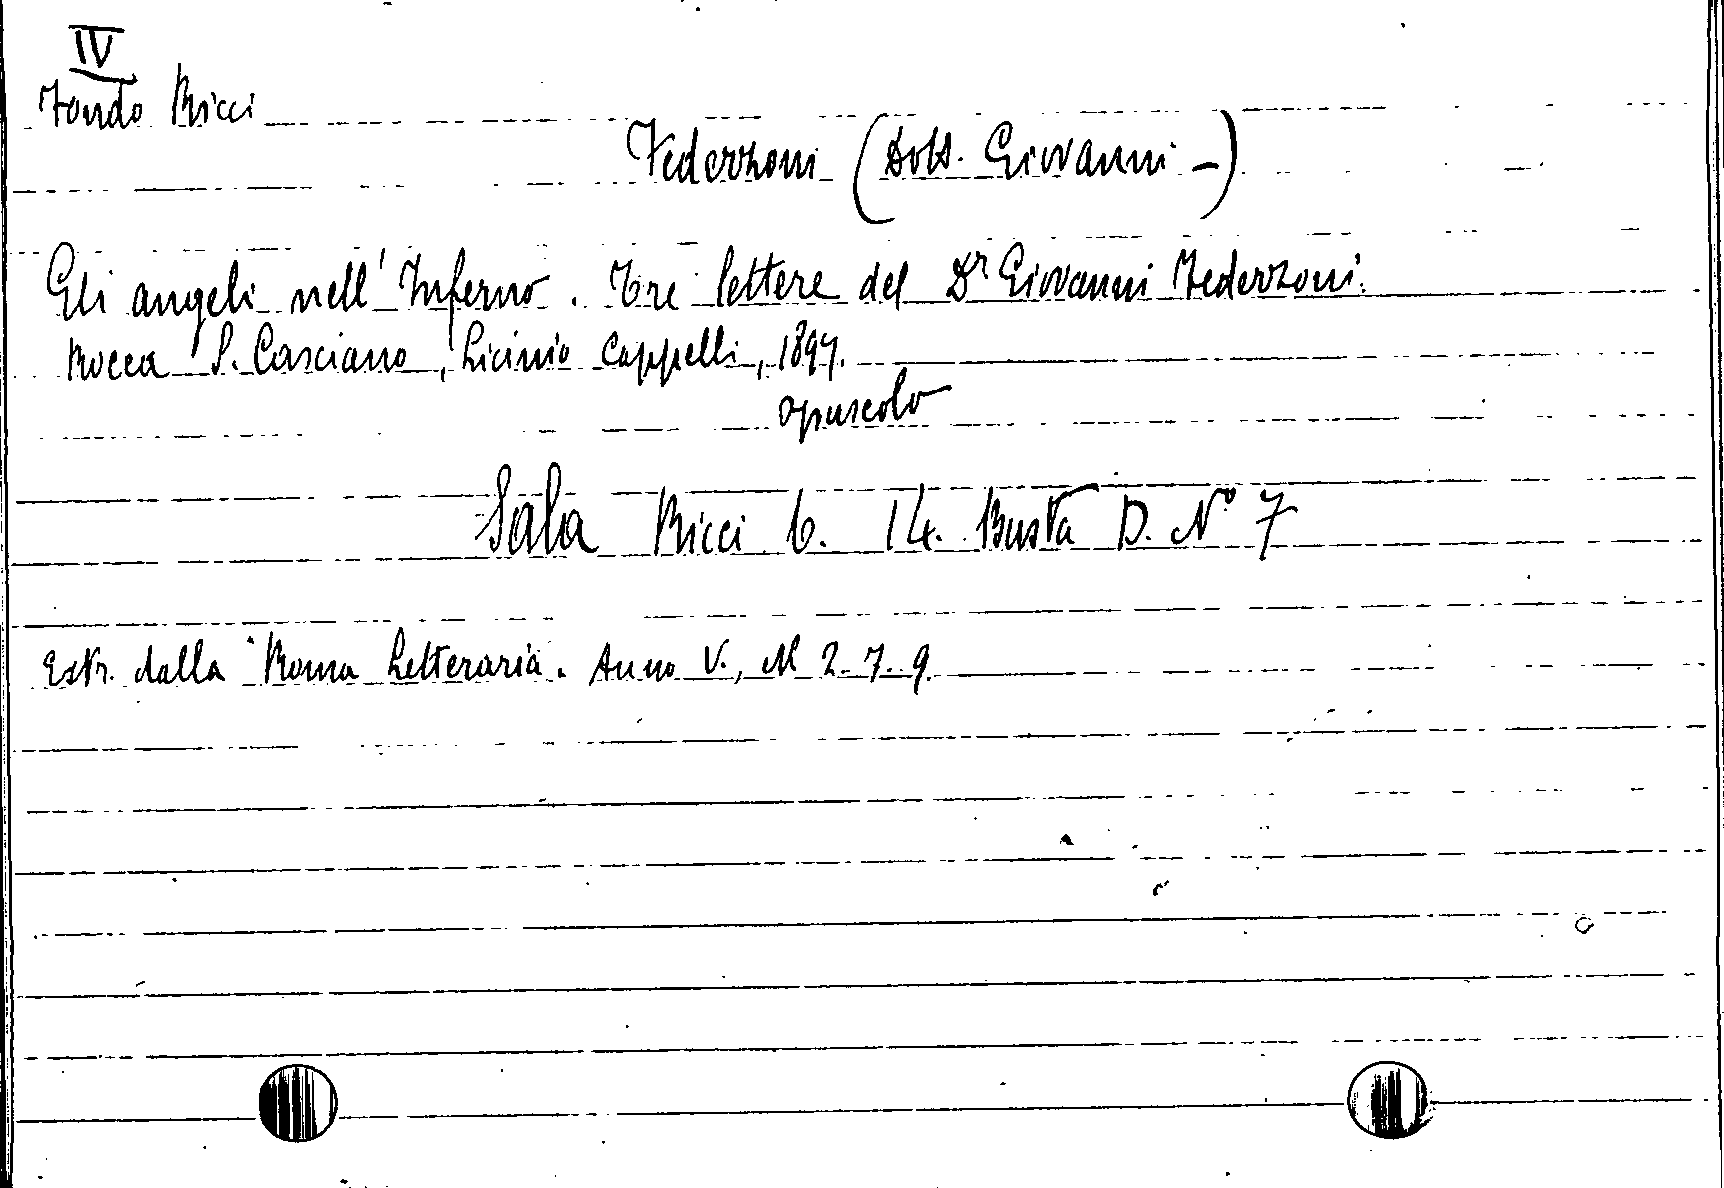 IV
Fondo Ricci
Federzoni (Dott. Giovanni -)
Gli angeli nell'Inferno. Tre lettere del Dr Giovanni Federzoni.
Rocca S. Casciano, Licinio Cappelli, 1897.
opuscolo
Sala Ricci b. 14. Busta D. N° 7
Estr. dalla Roma Letteraria. Anno V., N 2-7-9.